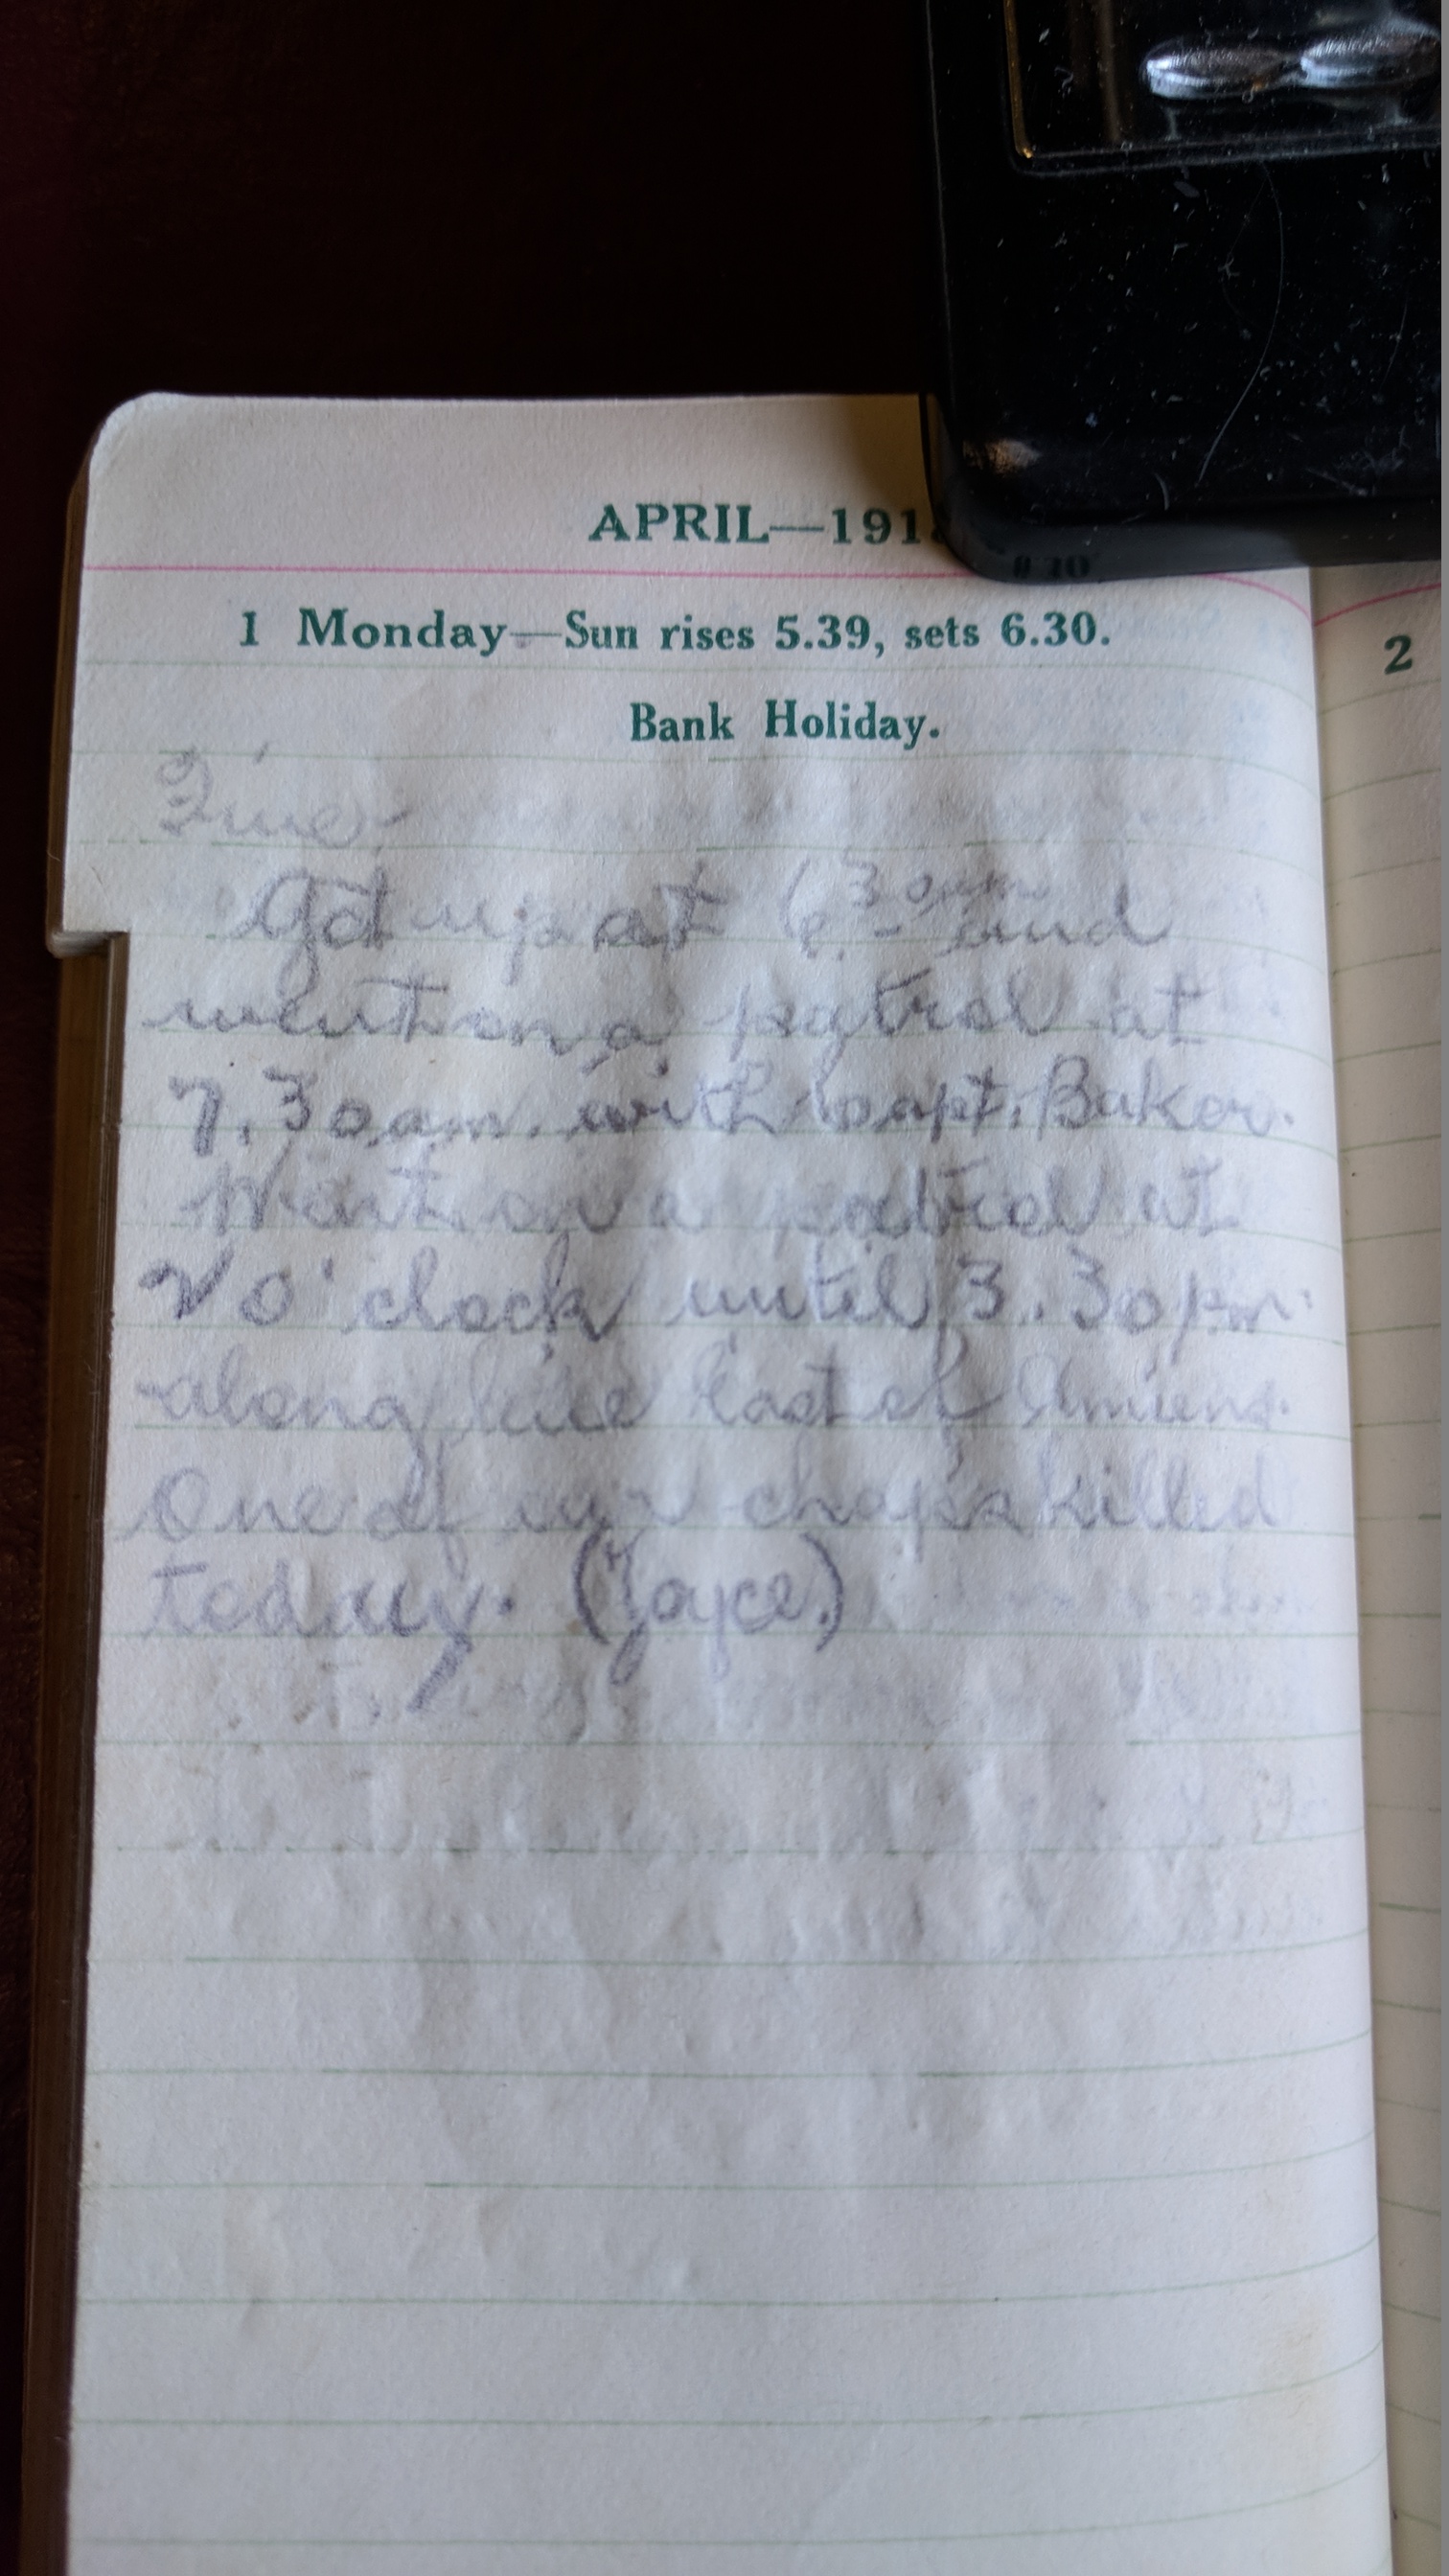 APRIL—191
1 Monday—Sun rises 5.39, sets 6.30.
2
Bank Holiday.
Fine
Got up at 6.30am and
went on a patrol at
7.30am. with Capt. Baker.
Went on a patrol at
2 o'clock until 3.30pm
along line East of Amiens.
One of our chaps killed
today. (Joyce.)